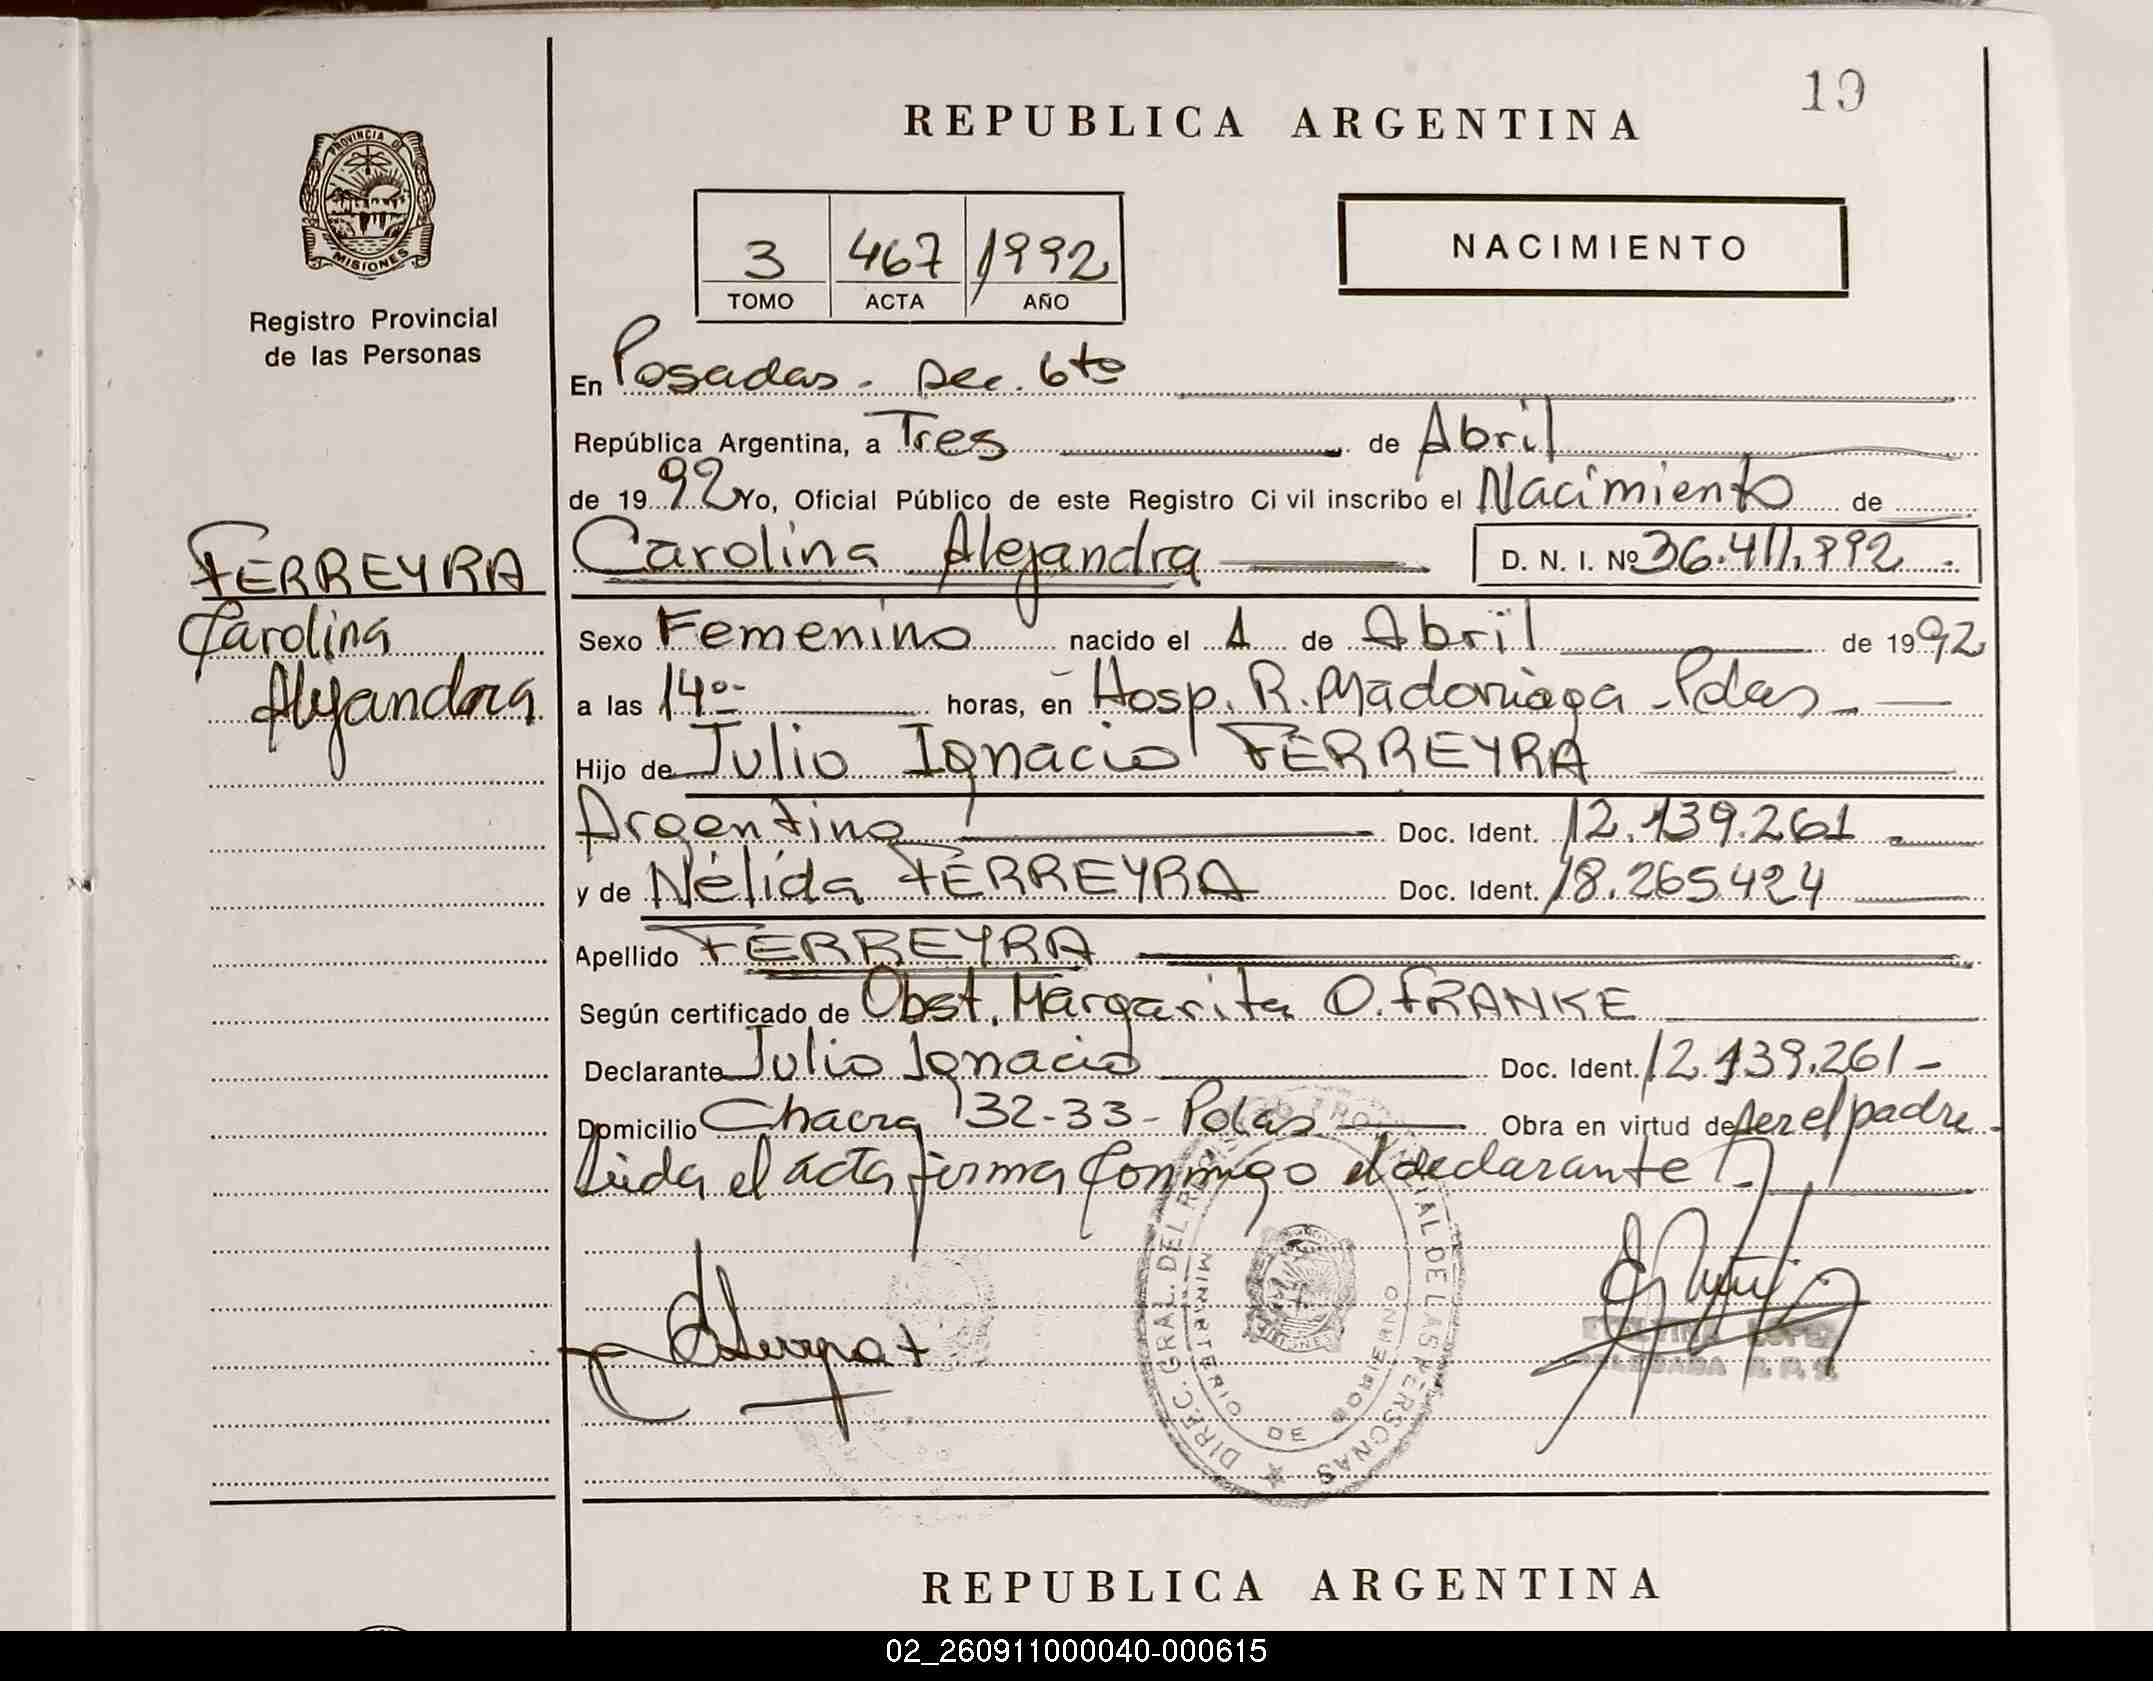 19
REPUBLICA ARGENTINA
PROVINCIA DE
MISIONES
Registro Provincial
de las Personas
3 467 1992
TOMO ACTA AÑO
NACIMIENTO
En Posadas - Sec. 6ta
República Argentina, a Tres de Abril
de 1992 Yo, Oficial Público de este Registro Civil inscribo el Nacimiento de
Carolina Alejandra D. N. I. Nº 36.411.992
FERREYRA
Carolina
Alejandra
Sexo Femenino nacido el 1 de Abril de 1992
a las 14º- horas, en Hosp. R. Madariaga - Pdas -
Hijo de Julio Ignacio FERREYRA
Argentino Doc. Ident. 12.139.261
y de Nélida FERREYRA Doc. Ident. 18.265.424
Apellido FERREYRA
Según certificado de Obst. Margarita O. FRANKE
Declarante Julio Ignacio Doc. Ident. 12.139.261-
Domicilio Chacra 32-33 - Pdas Obra en virtud de ser el padre.
Leida el acta firma conmigo el declarante.
DIREC. GRAL. DEL REGISTRO PROVINCIAL DE LAS PERSONAS
MINISTERIO DE GOBIERNO
MISIONES
DELEGADA R. P. P.
REPUBLICA ARGENTINA
02_260911000040-000615